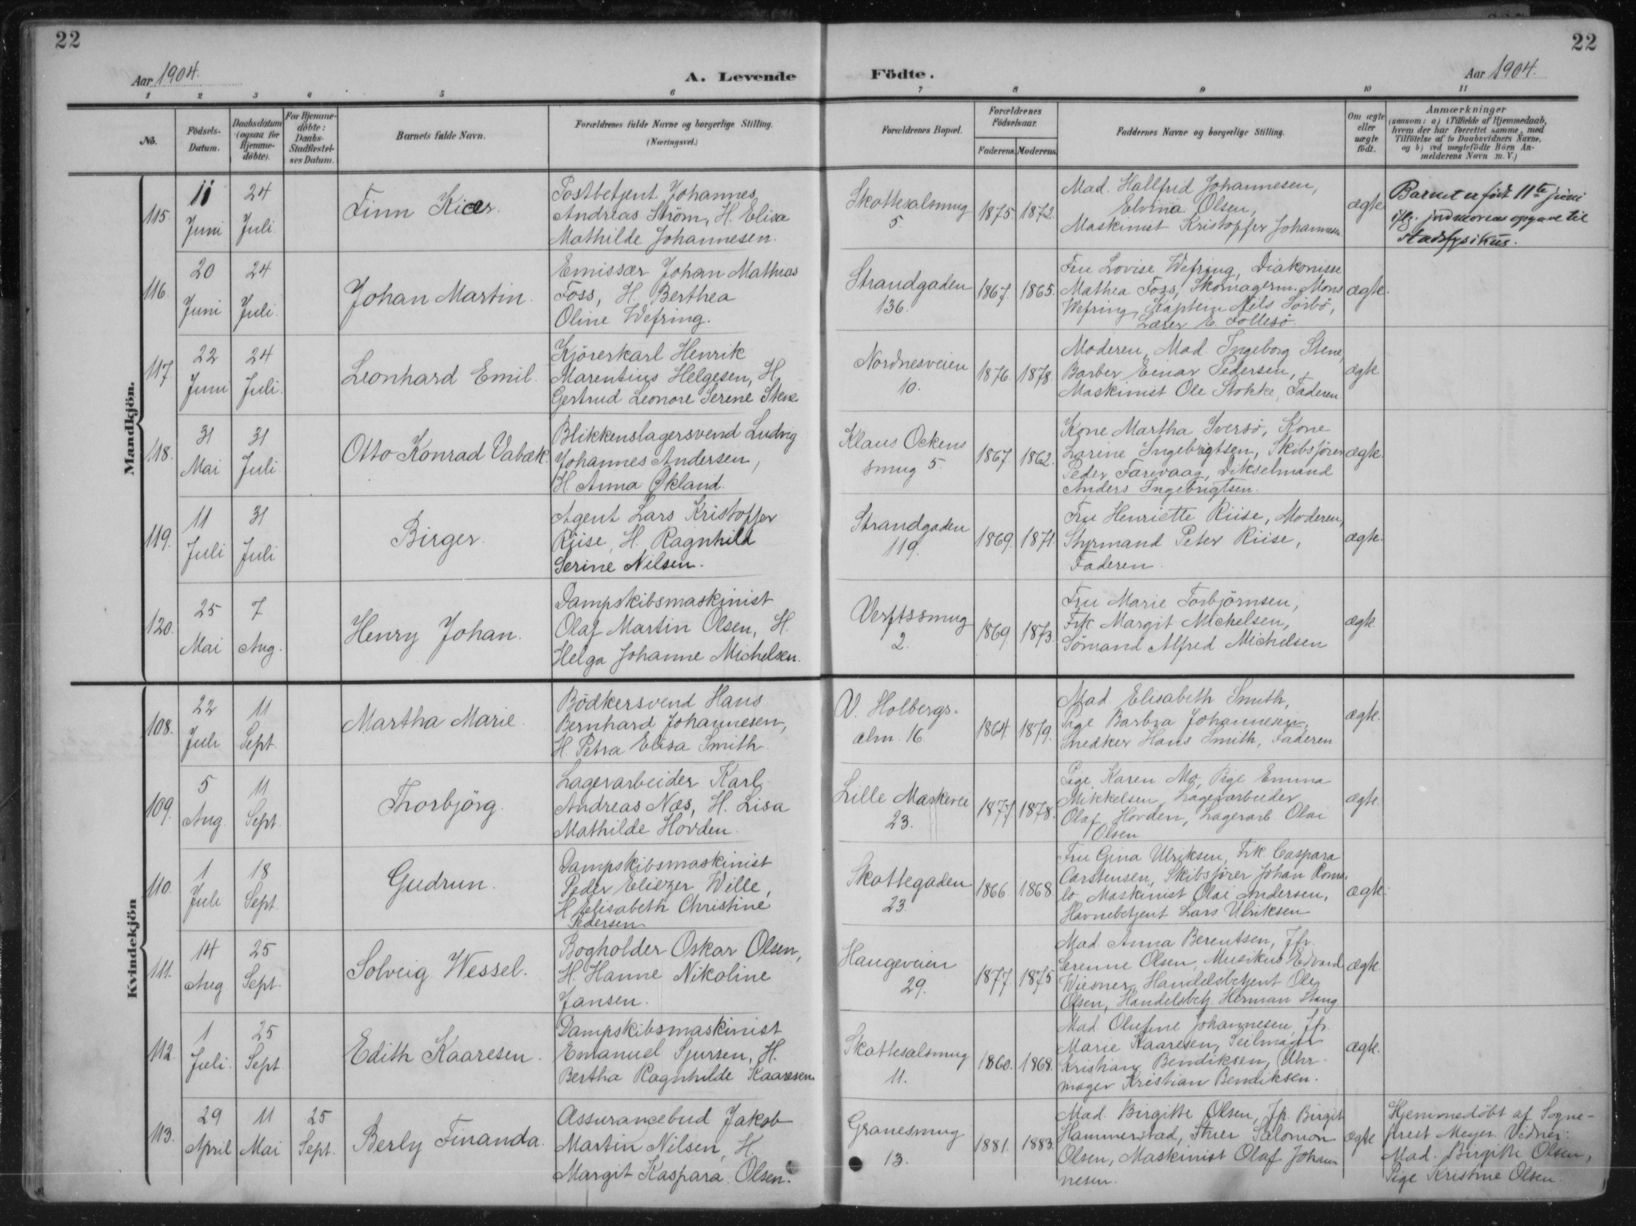 22
22
Aar 1904.
A. Levende
Födte.
Aar 1904.
1 2 3 4 5 6 7 8 9 10 11
No.
Födsels-Datum.
Daabsdatum (ogsaa for Hjemmedöbte).
For Hjemmedöbte: Daabs-Stadfæstelses Datum.
Barnets fulde Navn.
Forældrenes fulde Navne og borgerlige Stilling. (Næringsvei.)
Forældrenes Bopæl.
Forældrenes Födselsaar.
Faderens. Moderens.
Faddernes Navne og borgerlige Stilling.
Om ægte eller uægte födt.
Anmærkninger
(saasom: a) i Tilfælde af Hjemmedaab, hvem der har forrettet samme, med Tilföielse af to Daabsvidners Navne, og b) ved uægtefödte Börn Anmelderens Navn m. V.)
Mandkjön.
115.
11 Juni
24 Juli
Finn Kiær.
Postbetjent Johannes
Andreas Ström, H. Elisa
Mathilde Johannesen.
Skottesalmug
5.
1875 1872.
Mad. Hallfred Johannesen,
Elvina Olsen,
Maskinist Kristoffer Johannesen
ægte
Barnet er födt 11te juni
ifg. jordmorens opgave til
stadsfysikus.
116.
20 Juni
24 Juli
Johan Martin.
Emissær Johan Mathias
Foss, H. Berthea
Oline Wefring.
Strandgaden
136.
1867 1865.
Fru Lovise Wefring, Diakonisse
Mathea Foss, Skomagerm. Mons
Wefring, Kaptein Nils Sörbö,
Lærer E. Follesö.
ægte.
117.
22 Juni
24 Juli
Leonhard Emil.
Kjörerkarl Henrik
Marentius Helgesen, H.
Gertrud Leonore Serene Stene
Nordnesveien
10.
1876 1878.
Moderen, Mad. Ingeborg Stene,
Barber Einar Pedersen,
Maskinist Ole Stokke, Faderen
ægte
118.
31 Mai
31 Juli
Otto Konrad Vabæk
Blikkenslagersvend Ludvig
Johannes Andersen,
H. Anna Økland.
Klaus Ockens
smug 5
1867 1862.
Kone Martha Iversö, Kone
Larine Ingebrigtsen, Skibsförer
Peder Farevaag, Dikselmand
Anders Ingebrigtsen.
ægte
119.
11 Juli
31 Juli
Birger.
Agent Lars Kristoffer
Riise, H. Ragnhild
Serine Nilsen.
Strandgaden
119.
1869. 1871
Fru Henriette Riise, Moderen,
Styrmand Peter Riise,
Faderen.
ægte.
120.
25 Mai
7 Aug.
Henry Johan.
Dampskibsmaskinist
Olaf Martin Olsen, H.
Helga Johanne Michelsen.
Verftssmug
2.
1869 1873.
Fru Marie Torbjörnsen,
Frk. Margit Michelsen,
Sömand Alfred Michelsen
ægte.
Kvindekjön
108.
22 Juli
11 Sept.
Martha Marie.
Bödkersvend Hans
Bernhard Johannesen,
H. Petra Elisa Smith.
V. Holbergs-
alm. 16
1864 1879.
Mad. Elisabeth Smith,
Pige Barbra Johannesen,
Snedker Hans Smith, Faderen
ægte.
109.
5 Aug.
11 Sept.
Thorbjörg.
Lagerarbeider Karl
Andreas Næs, H. Lisa
Mathilde Hovden.
Lille Markevei
23.
1877. 1878.
Pige Karen Mo, Pige Emma
Mikkelsen, Lagerarbeider
Olaf Hovden, Lagerarb. Olai
Olsen
ægte.
110.
1 Juli
18 Sept.
Gudrun.
Dampskibsmaskinist
Peder Eliezer Wille,
H. Elisabeth Christine
Pedersen
Skottegaden
23.
1866 1868
Fru Gina Ulriksen, Frk. Caspara
Carstensen, Skibsförer Johan
Maskinist Olai Andersen,
Havnebetjent Lars Ulriksen
ægte.
111.
14 Aug.
25 Sept.
Solveig Wessel.
Bogholder Oskar Olsen,
H. Hanne Nikoline
Jansen.
Haugeveien
29.
1877 1875
Mad. Anna Berentsen, Jfr.
Serenne Olsen, Musikus Edvard
Wiesner, Handelsbetjent Ole
Olsen, Handelsbetj. Herman Stang
ægte
112.
1 Juli.
25 Sept.
Edith Kaaresen.
Dampskibsmaskinist
Emanuel Sjursen, H.
Bertha Ragnhilde Kaaresen
Skottesalmug
11.
1860. 1868.
Mad. Olufine Johannesen, Jfr.
Marie Kaaresen, Seilmager
Kristian Bendiksen, Uhr-
mager Kristian Bendiksen.
ægte.
113.
29 April
11 Mai
25 Sept.
Berly Finanda.
Assurancebud Jakob
Martin Nilsen, H.
Margit Kaspara Olsen.
Granesmug
13.
1881. 1883.
Mad. Birgitte Olsen, Jfr. Birgit
Hammerstad, Salomon
Olsen, Maskinist Olaf Johan-
nesen.
ægte
Hjemmedöbt af Sogne-
prest Meyer. Vidner:
Mad. Birgitte Olsen,
Pige Kristine Olsen.